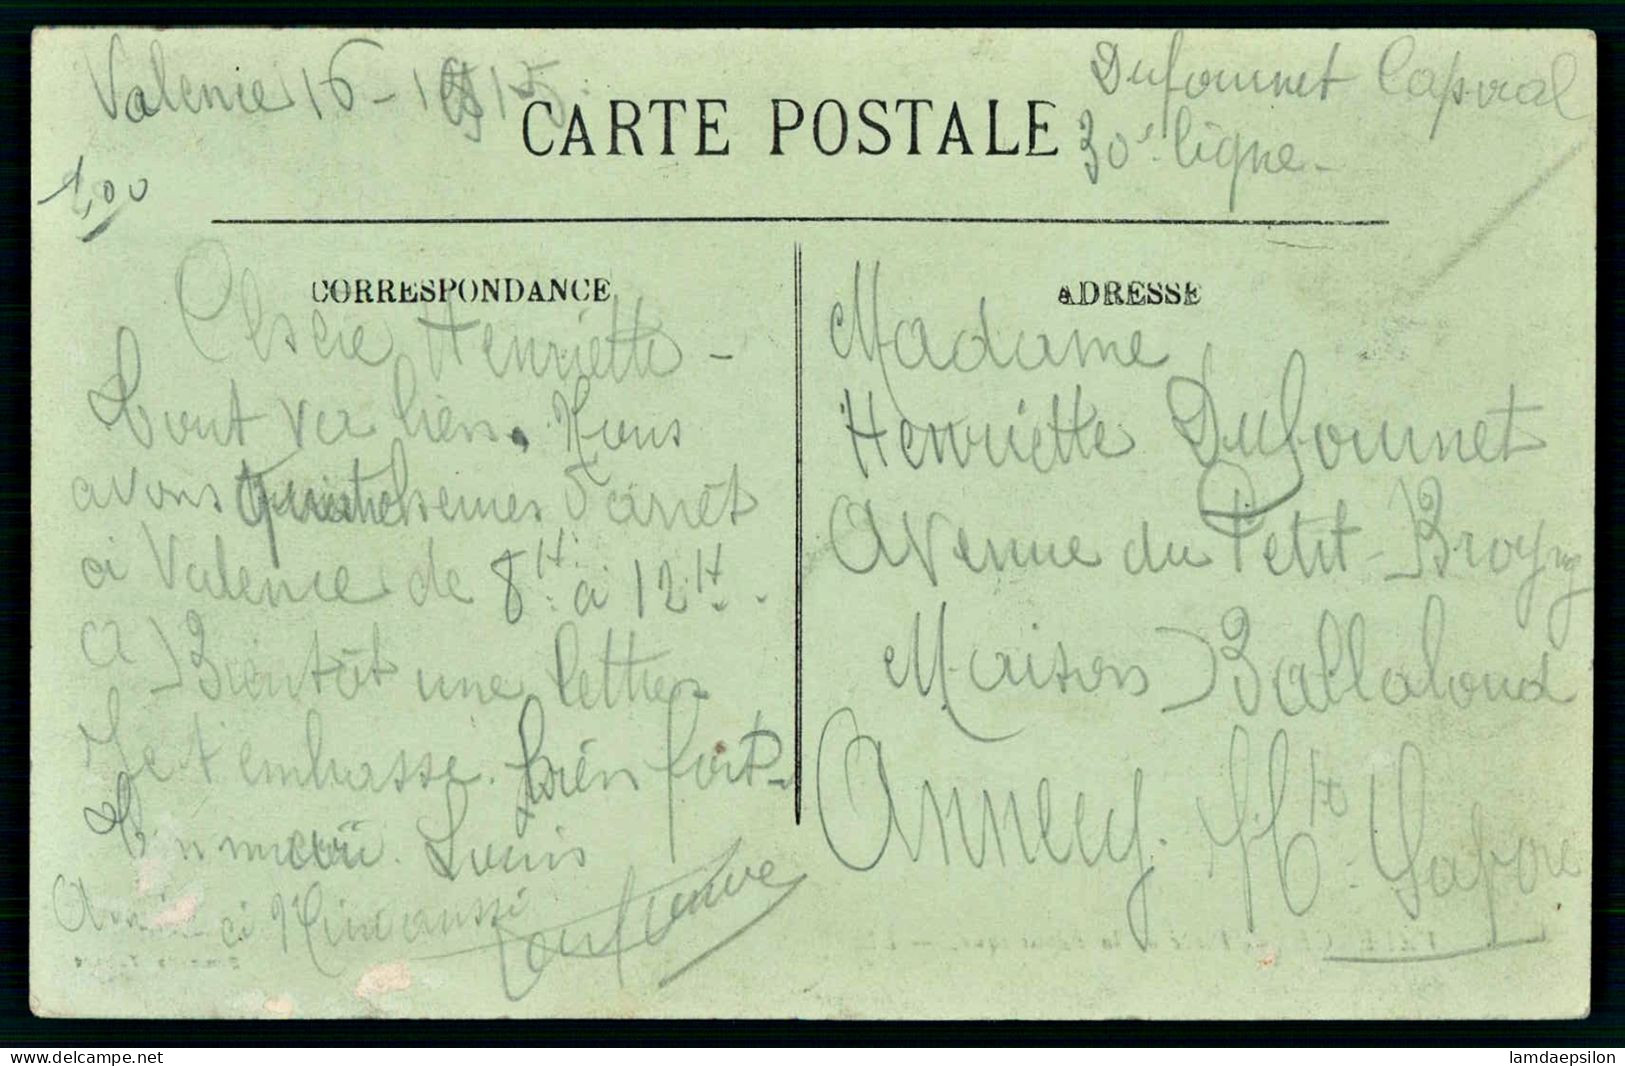 Valence 16-
Dufournet Caporal
30e ligne-
CARTE POSTALE
1,00
CORRESPONDANCE
ADRESSE
Henriette -
tout va bien. Nous
avons d'arrêt
à Valence de 8H. à 12H. -
A Bientôt une lettre
Je t'embrasse. bien fort-
Louis
à Nini aussi
Madame
Henriette Dufournet
Avenue du Petit-Brogny
Maison Ballaloud
Annecy. Hte Savoie
delcampe.net
lamdaepsilon